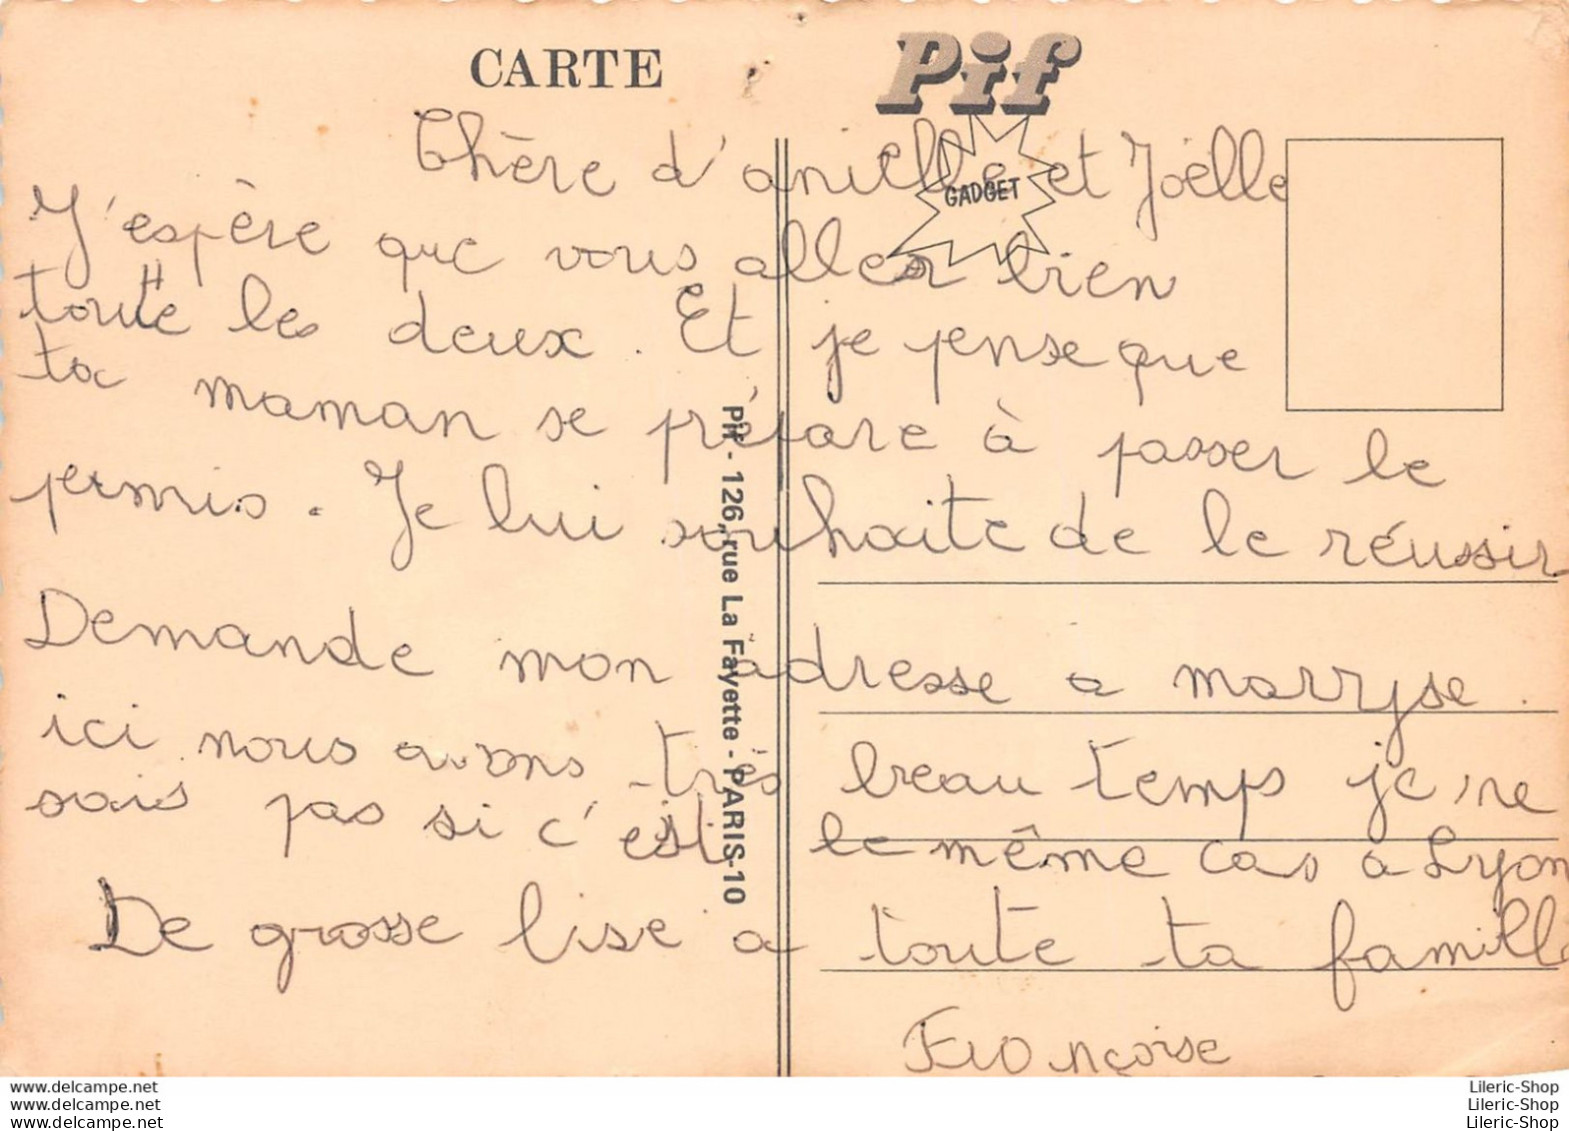 CARTE
Pif
GADGET
Chère d'anielle et Joëlle
J'espère que vous aller bien
toute les deux. Et je pense que
ta maman se prépare à passer le
permis. Je lui souhaite de le réussir
Demande mon adresse a marryse.
ici nous avons très beau temps je ne
sais pas si c'est le même cas a Lyon
De grosse bise a toute ta famille
Françoise
Pif - 126, rue La Fayette - PARIS-10
www.delcampe.net
www.delcampe.net
www.delcampe.net
Lileric-Shop
Lileric-Shop
Lileric-Shop